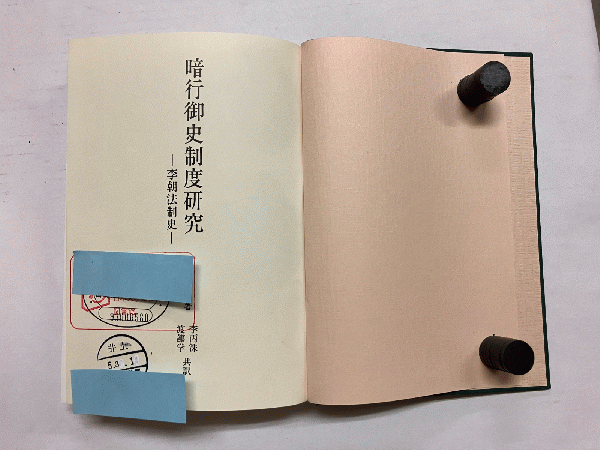 暗行御史制度研究
―李朝法制史―
著
李丙洙
渡部学
共訳